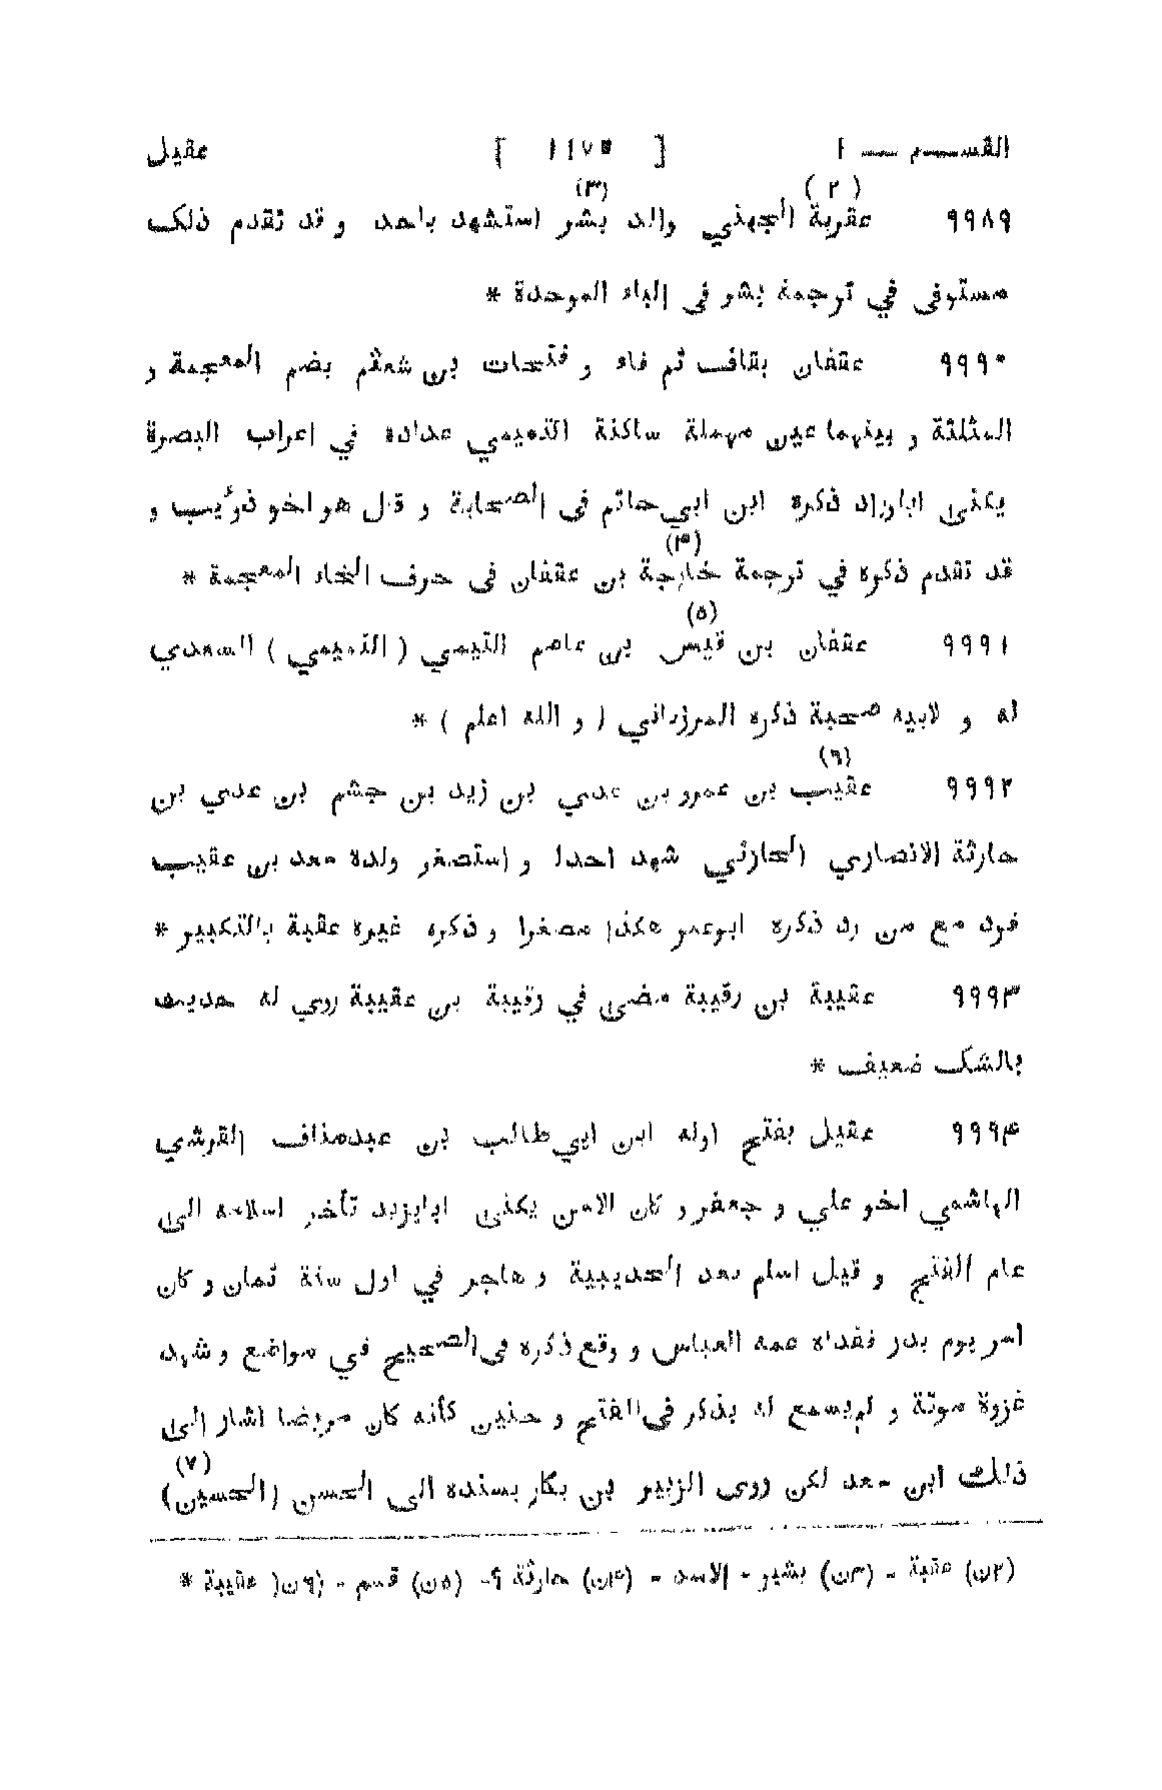 القســـم — ١ [ ١١٧٥ ] عقيل
٩٩٨٩ عقربة (٢) الجهني والد بشر (٣) استشهد باحد و قد تقدم ذلك
مستوفى في ترجمة بشر فى الباء الموحدة *
٩٩٩٠ عقفان بقاف ثم فاء و فتحات بن شعثم بضم المعجمة و
المثلثة و بينهما عين مهملة ساكنة التميمي عداده في اعراب البصرة
يكنى ابا وراد ذكره ابن ابي حاتم فى الصحابة و قال هو اخو ذؤيب و
قد تقدم ذكره في ترجمة خارجة (۴) بن عقفان فى حرف الخاء المعجمة *
٩٩٩١ عقفان بن قيس (٥) بن عاصم التيمي ( التميمي ) السعدي
له و لابيه صحبة ذكره المرزباني ( و الله اعلم ) *
٩٩٩٢ عقيب (٦) بن عمرو بن عدي بن زيد بن جشم بن عدي بن
حارثة الانصاري الحارثي شهد احدا و استصغر ولده سعد بن عقيب
فرد مع من رد ذكره ابوعمر هكذا مصغرا و ذكره غيره عقبة بالتكبير *
٩٩٩٣ عقيبة بن رقيبة مضى في رقيبة بن عقيبة روي له حديث
بالشك ضعيف *
٩٩٩۴ عقيل بفتح اوله ابن ابي طالب بن عبدمناف القرشي
الهاشمي اخو علي و جعفر و كان الاسن يكنى ابايزيد تأخر اسلامه الى
عام الفتح و قيل اسلم بعد الحديبية و هاجر في اول سنة ثمان و كان
اسر يوم بدر ففداه عمه العباس و وقع ذكره فى الصحيح في مواضع و شهد
غزوة موتة و لم يسمع له بذكر فى الفتح و حنين كأنه كان مريضا اشار الى
ذلك ابن سعد لكن روى الزبير بن بكار بسنده الى الحسن (الحسين) (٧)
(٢ن) عقبة - (٣ن) بشير - الاسد - (۴ن) حارثة ؟- (٥ن) قسم - (٦ن) عقيبة *